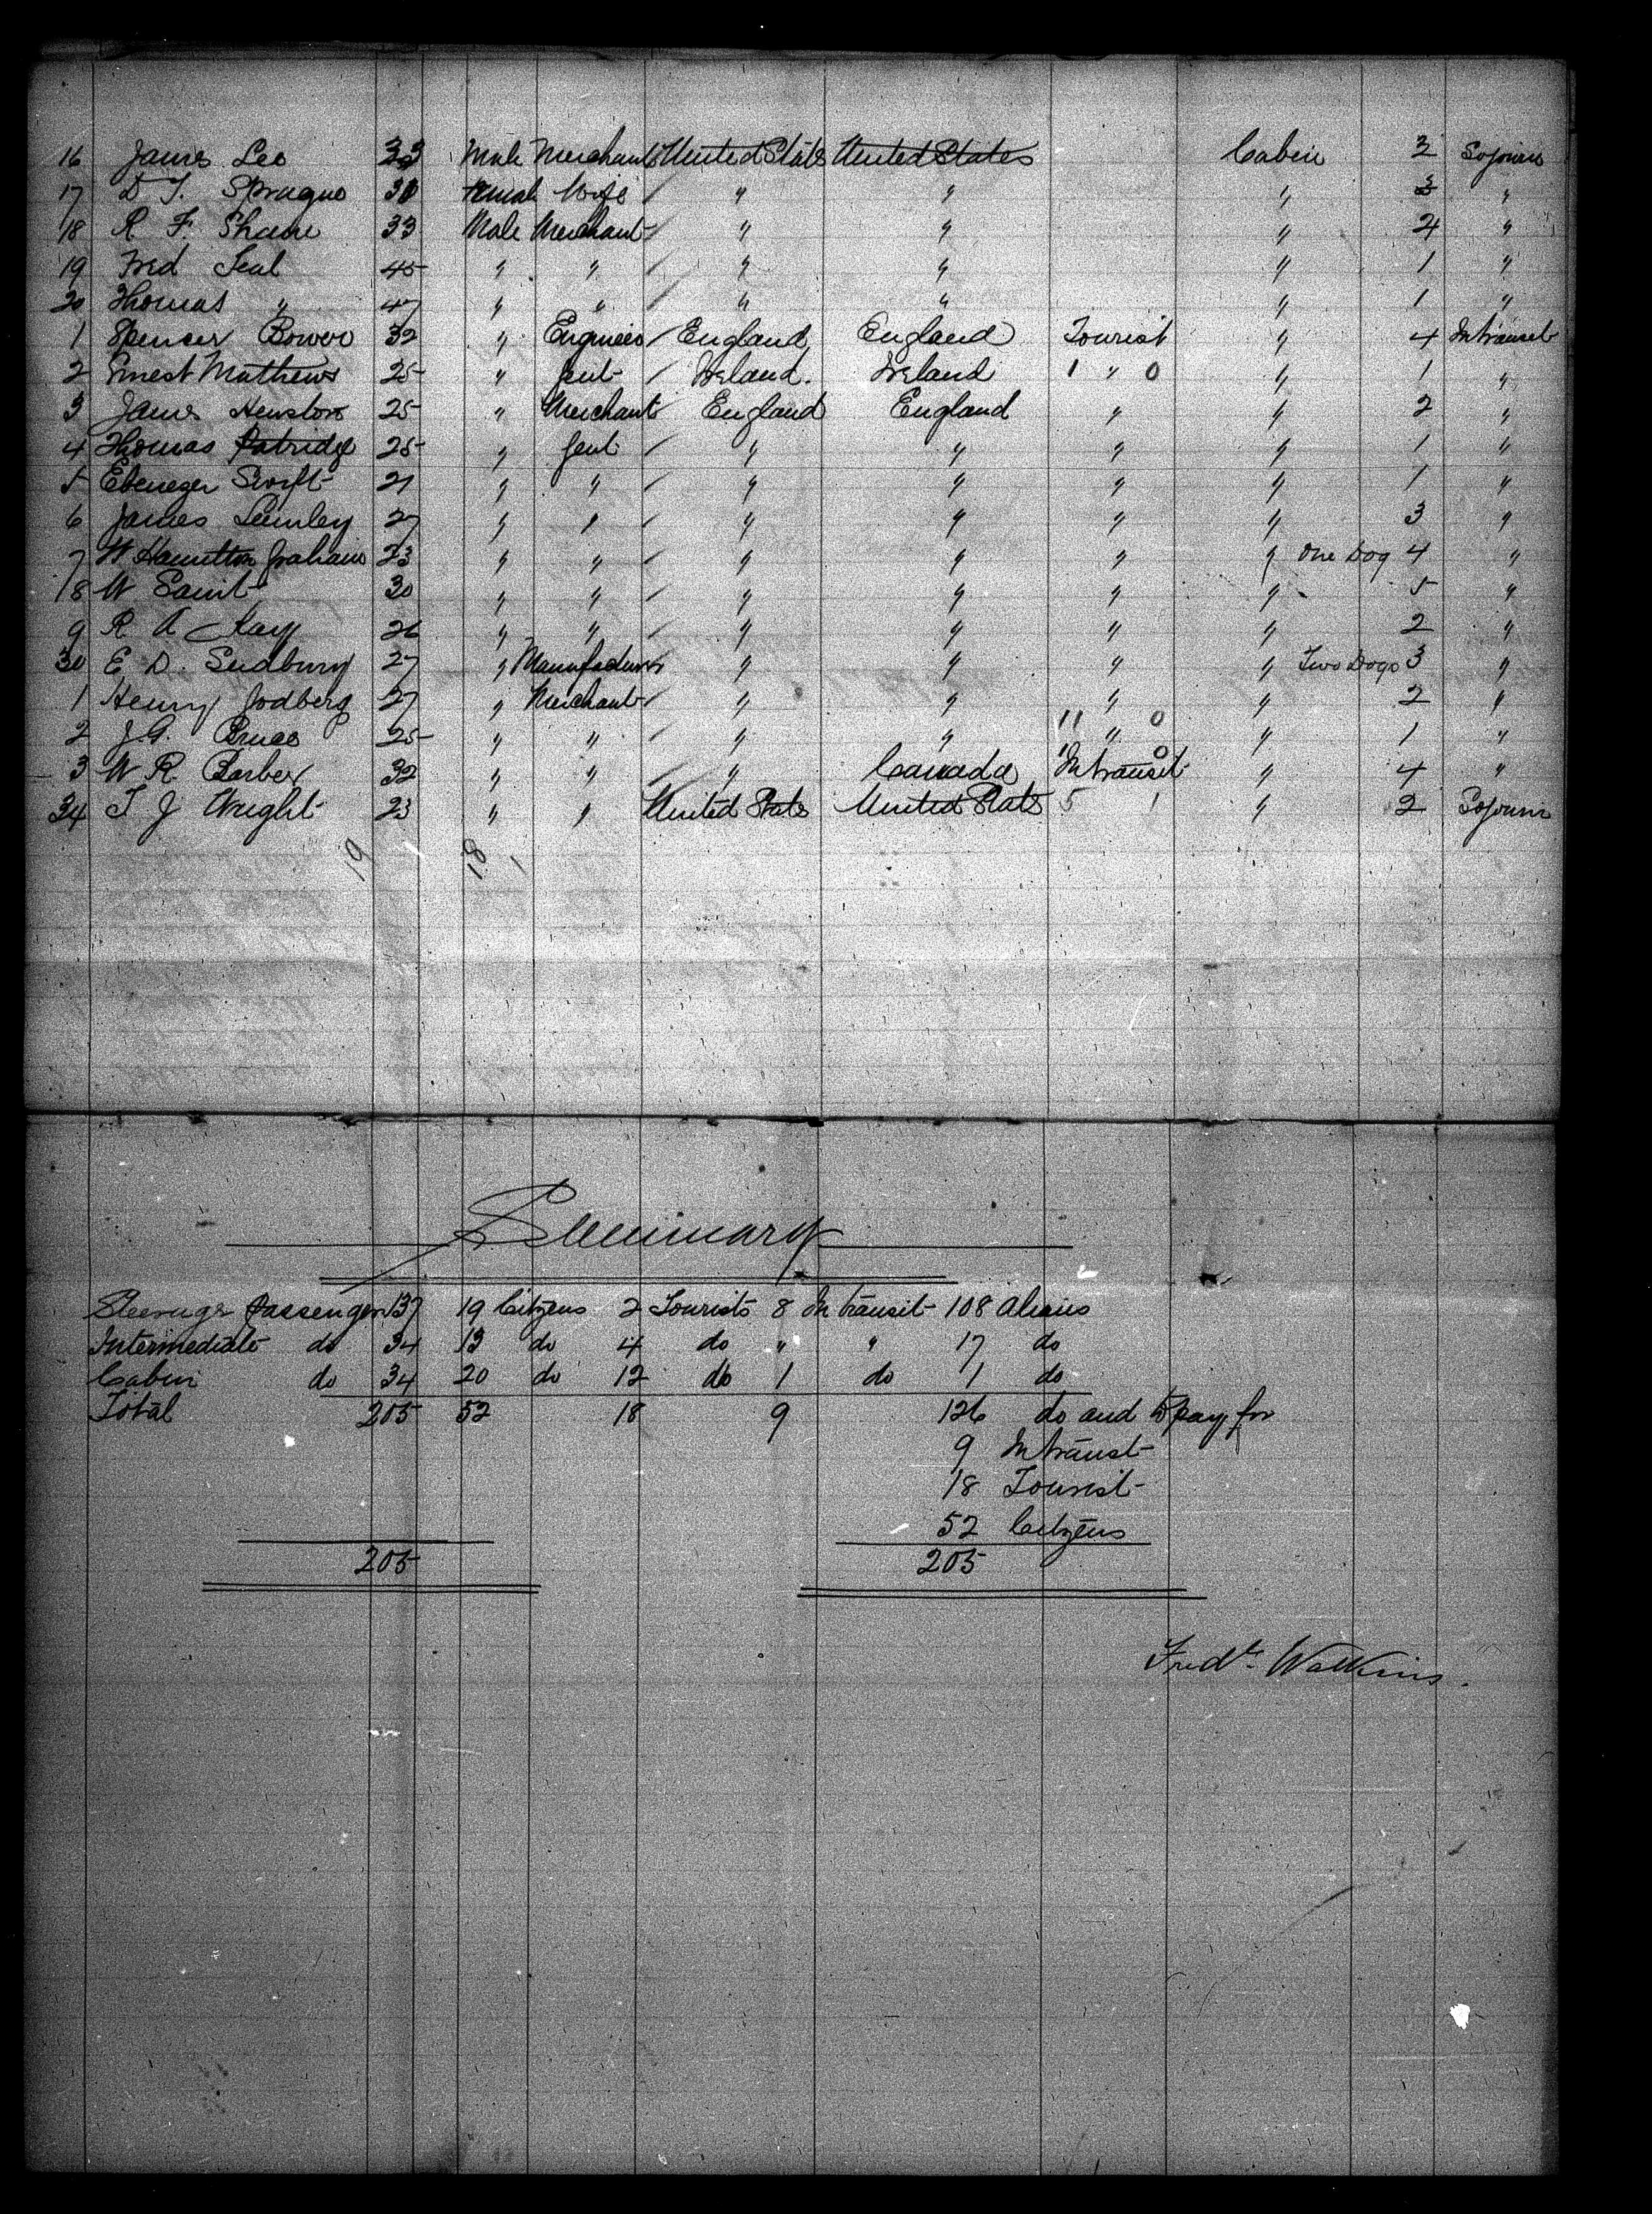 16 James Leo 33 Male Merchant United States United States Cabin 3 Sojourn
17 D T. Sprague 31 Female Wife / " " " 3 "
18 R F Shaw 33 Male Merchant / " " " 4 "
19 Fred Seal 45 " " / " " " 1 "
20 Thomas " 47 " " / " " " 1 "
1 Spencer Bower 32 " Engineer / England England Tourist " 4 In transit
2 Ernest Mathews 25 " Gent / Ireland. Ireland 1 " 0 " 1 "
3 James Henston 25 " Merchant England England " " 2 "
4 Thomas Patridge 25 " Gent / " " " " 1 "
5 Ebenezer Swift 21 " " / " " " " 1 "
6 James Lumley 27 " " / " " " " 3 "
7 W Hamilton Graham 23 " " / " " " " One Dog 4 "
18 W Saint 30 " " / " " " " 5 "
9 R A Kay 26 " " / " " " " 2 "
30 E D. Sudbury 27 " Manufacturer " " " " Two Dogs 3 "
1 Henry Godberg 27 " Merchant / " " " " 2 "
2 J.G. Bruce 25 " " / " " 11 " 0 " 1 "
3 W R Barber 32 " " / " Canada 1 In transit 0 " 4 "
34 T J Wright 23 " " United States United States 5 1 " 2 Sojourn
19 18 1
Summary
Steerage Passengers 137 19 Citizens 2 Tourists 8 In transit 108 Aliens
Intermediate do 34 13 do 4 do " " 17 do
Cabin do 34 20 do 12 do 1 do 1 do
Total 205 52 18 9 126 do and to pay for
9 In transit
18 Tourist
52 Citizens
205 205
Fredk. Watkins.